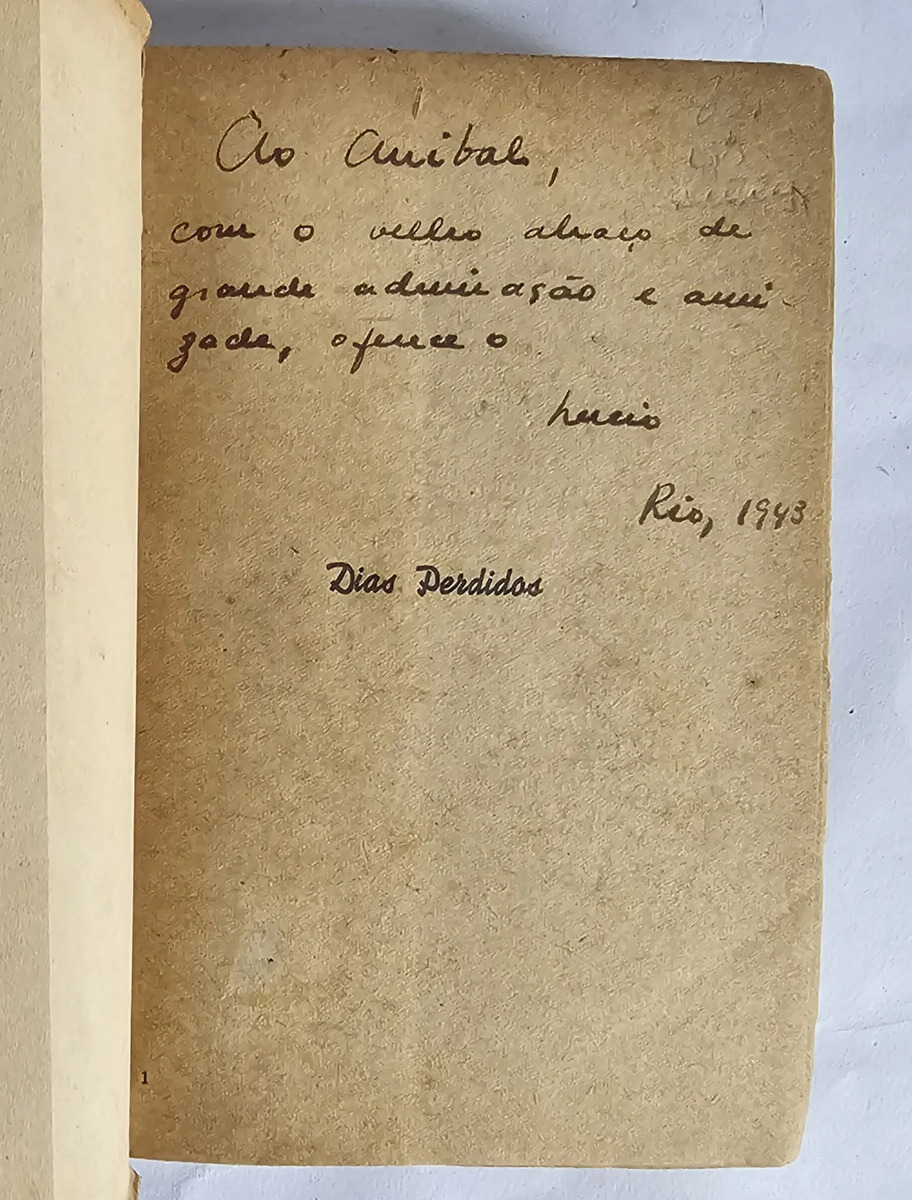 Ao Anibal,
com o velho abraço de
grande admiração e ami-
zade, oferece o
Lucio
Rio, 1943
Dias Perdidos
1